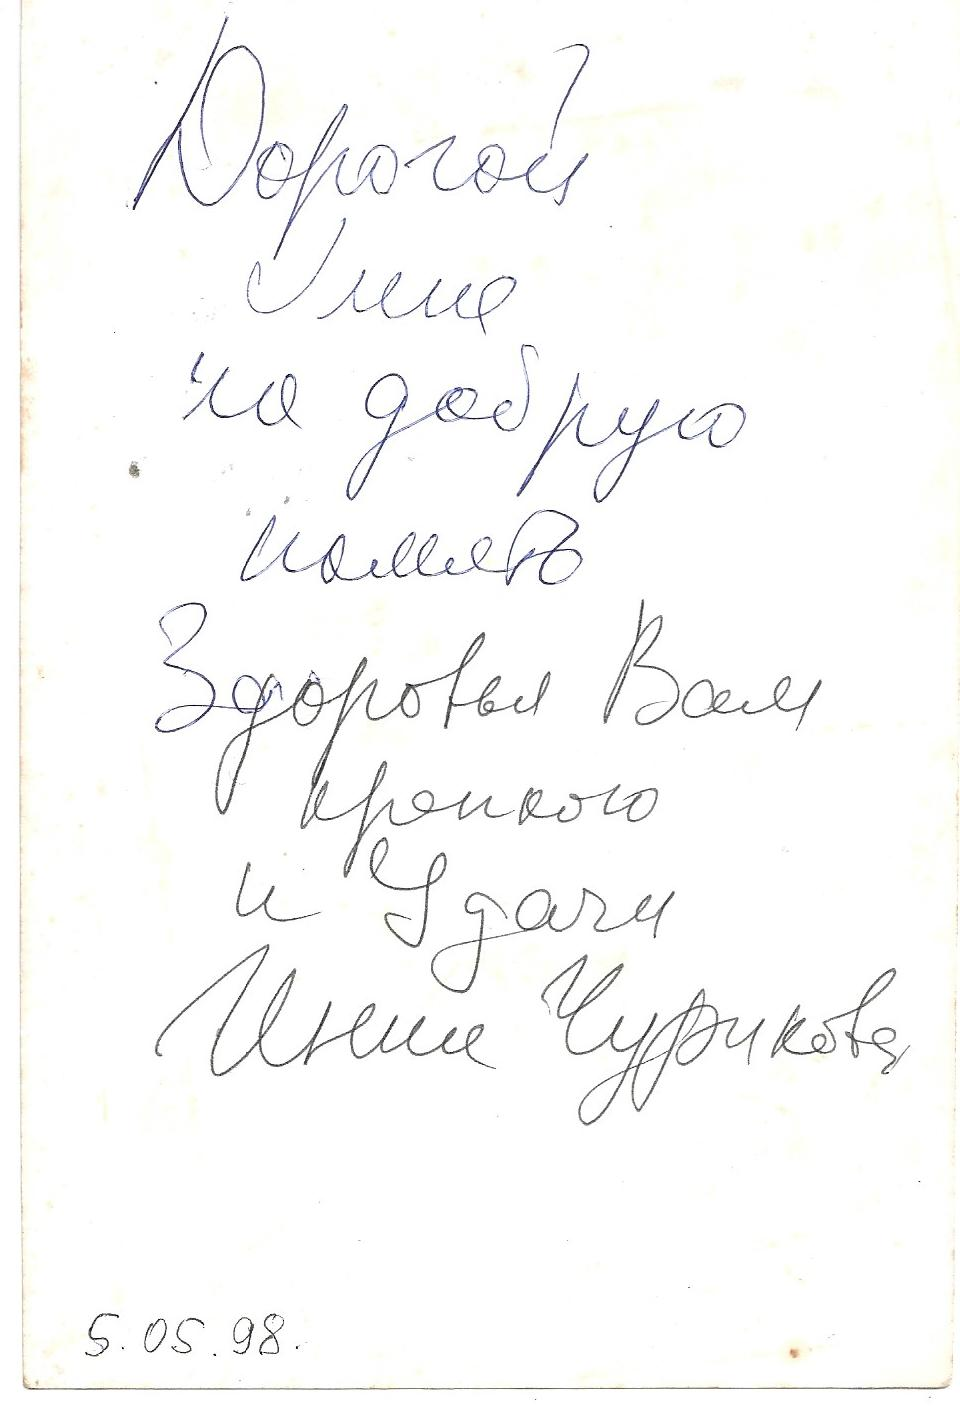 Дорогой
Инне
на добрую
память
Здоровья Вам
крепкого
и Удачи
Инна Чурикова
5.05.98.